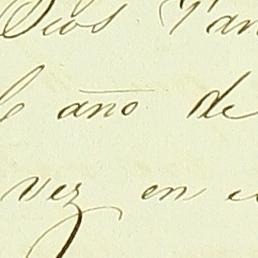 Dios
año de
vez en